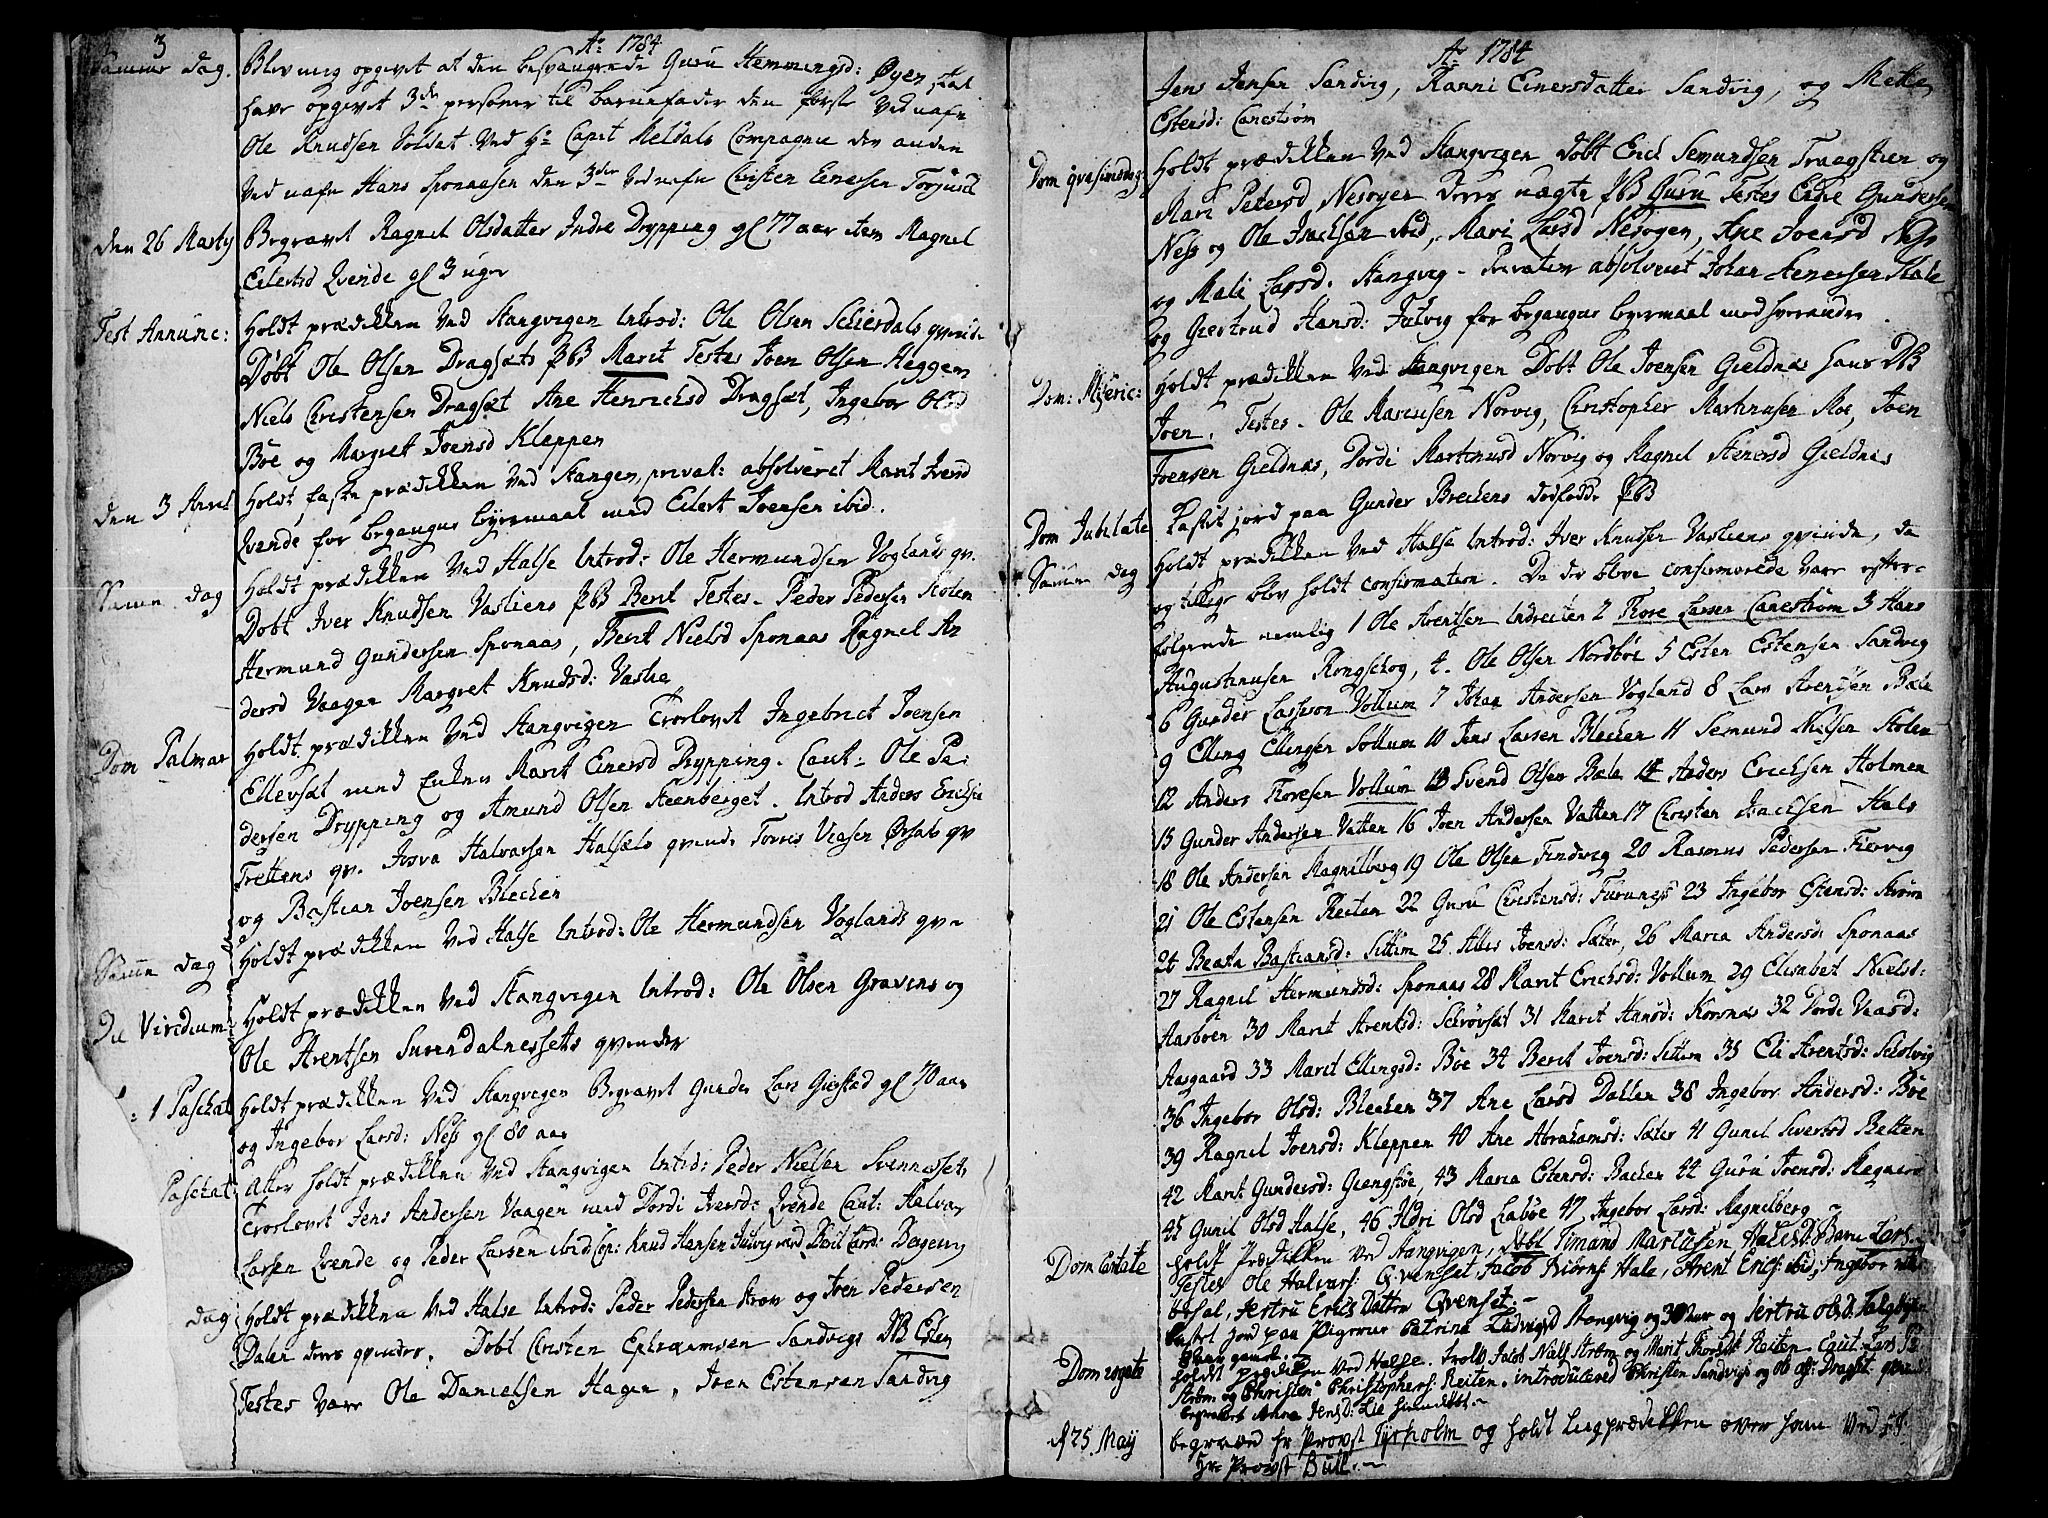 3
Ao 1784
Samme dag. Blev mig opgivet at den besvangrede Guru Hemmingsd: Øyen skal
have opgivet 3de personer til barnefader den første ved nafn
Ole Knudsen Soldat ved Hr Capit Meldals Compagnie den anden
ved nafn Hans Sponaasen den 3die ved nafn Christen Einersen
den 26 Marty Begravet Ragnel Olsdatter Indre Drypping gl 77 aar item Magnel
Eilertsd Qvende gl 3 uger
Fest Annunc: Holdt prædikken ved Stangvigen Introd: Ole Olsen Schierdals qvinde
Døbt Ole Olsen Dragsæts PB Marit Testes Joen Olsen Heggem
Niels Christensen Dragsæt Ane Henrichsd Dragsæt, Ingebor Olsd
Bøe og Margret Joensd Kleppen
den 3 April Holdt faste prædikken ved Stangen, privat: absolveret Marit Iversd
Qvende for begangne leyermaal med Eilert Joensen ibid.
Samme dag Holdt prædikken ved Halse Introd: Ole Hermundsen Voglands qv.
Døbt Iver Knudsen Vastiens PB Berit Testes. Peder Pedersen Stolen
Hermund Gundersen Sponaas, Berit Nielsd Sponaas Ragnel An
dersd Vaagen Margret Knudsd: Vaslia
Dom Palmar Holdt prædikken ved Stangvigen Trolovet Ingebrict Joensen
Ellevsæt med Enken Marit Einersd Drypping. Caut: Ole Pe:
dersen Drypping og Amund Olsen Steenberget. Introd Anders Erichsen
Trettens qv. Josva Halvarsen Halsæts qvinde Torris Viasen Ørsals qv
og Bastian Joensen Blecken
Samme dag Holdt prædikken ved Halse Introd: Ole Hermundsen Voglands qv-
Die Viridium Holdt prædikken ved Stangvigen Introd: Ole Olsen Gravens og
Ole Arentsen Surendalnessets qvinder
: 1 Paschat Holdt prædikken ved Stangvigen Begravet Gunder Lars Gierstad gl 70 aar
og Ingebor Larsd: Ness gl 80 aar
Paschat: Atter holdt prædikken ved Stangvigen Introd: Peder Nielsen Svennesset
Trolovet Jens Andersen Vaagen med Dordi Iversd: Qvende Caut: Halvar
Larsen Qvende og Peder Larsen ibid Cop: Knud Hansen Julvig med Berit Larsd:
dag Holdt prædikken ved Halse Introd: Peder Pedersen Strøm og Joen Pedersen
Dalen deres qvinder. Døbt Christen Ephraimsen Sandvigs DB Esten
Testes vare Ole Danielsen Hagen, Joen Estensen Sandvig
Ao 1784
Jens Jensen Sandvig, Ranni Einersdatter Sandvig, og Mette
Estensd: Canestrøm
Dom qvasimodog: Holdt prædikken ved Stangvigen døbt Erich Semundsen Traagstien og
Mari Petersd Nesøyen deres uægte PB Guru Testes Endre Gundersen
Ness og Ole Isachsen ibid, Mari Larsd Nesøyen, Ane Joensd Ness
og Mali Larsd. Stangvig - Privatim absolveret Johan Stenersen Hale
og Giertrud Hansd: Julvig for begangne leyermaal med hverandre.
Dom: Miseric: Holdt prædikken ved Stangvigen Døbt Ole Joensen Gieldnes hans DB
Joen. Testes. Ole Larensen Norvig, Christopher Marthinusen Moe, Joen
Joensen Gieldnæs, Dordi Martinusd Norvig og Ragnel Stenersd Gieldnæs
Kastet jord paa Gunder Brechens dødfødde PB
Dom Jubilate Holdt prædikken ved Halse Introd: Iver Knudsen Vastiens qvinde, da
Samme dag og tillige blev holdt confirmation. De der bleve confirmerede vare efter-
følgende nemlig 1 Ole Arentsen Indreiten 2 Tore Larsen Canestrøm 3 Hans
Augustinusen Rongschog, 4. Ole Olsen Nordbøe 5 Esten Estensen Sandvig
6 Gunder Lasseson Vollum 7 Johan Andersen Vogland 8 Lars Arentsen Bæle
9 Elling Ellingsen Sollum 10 Jens Larsen Blecken 11 Semund Nielsen Stolen
12 Anders Toresen Vollum 13 Svend Olsen Bæle 14 Anders Erichsen Holmen
15 Gunder Andersen Vatten 16 Joen Andersen Vatten 17 Christen Isachsen Hals
18 Ole Andersen Magnilberg 19 Ole Olsen Findvig 20 Rasmus Pedersen Fiervig
21 Ole Estensen Reiten 22 Guru Christensd: Furunes 23 Ingebor Estensd: Strøm
24 Beata Bastiansd: Settem 25. Alles Joensd: Sæter, 26 Maria Andersd: Sponaas
27 Ragnel Hermundsd: Sponaas 28 Marit Erichsd: Vollum 29 Elisabet Nielsd:
Aasboen 30 Marit Arentsd: Schrøvset 31 Marit Hansd: Korsnæs 32 Dordi Viaasd:
Aasgaard 33 Marit Ellingsd: Bøe 34 Berit Joensd: Settem 35 Eli Arentsd: Scholvig
36 Ingebor Olsd: Blecken 37 Ane Larsd Dahlen 38 Ingebor Andersd: Bøe
39 Ragnel Joensd: Kleppen 40 Ane Abrahamsd: Sæter 41 Gunil Sivertsd Betten
42 Marit Gundersd: Giengstøe, 43 Maria Estensd: Backen 44 Guru Joensd:
45 Gunil Olsd Halse, 46 Ildri Olsd Labøe 47 Ingebor Larsd: Magnilberg
Dom Cantate Holdt Prædikken ved Stangvigen, Døbt Timand Martussen Hales D: Barn Lars.
Testes Ole Halvars: Qvenset, Jacob Biørns Hale, Arent Erics: ibid, Ingebor
Qvenset.
Castet Jord paa Pigerne Catrina Ludvigsd Stangvig og 30 Aar og Jertru Olsd.
Dom rogate Holdt prædikken ved Halse. Trolb Jacob Niels Strøm og Marit Reiten Caut. Lars
Strøm og Christen Christophers: Reiten, introducered Christen Sandvigs og Ole Ols: Dragset. qvinder
begravet Anna Jensd:
d 25 May begraved Hr Provst Tyrholm og holdt Liigprædikken over ham ved S: T:
Hr: Provst Bull.